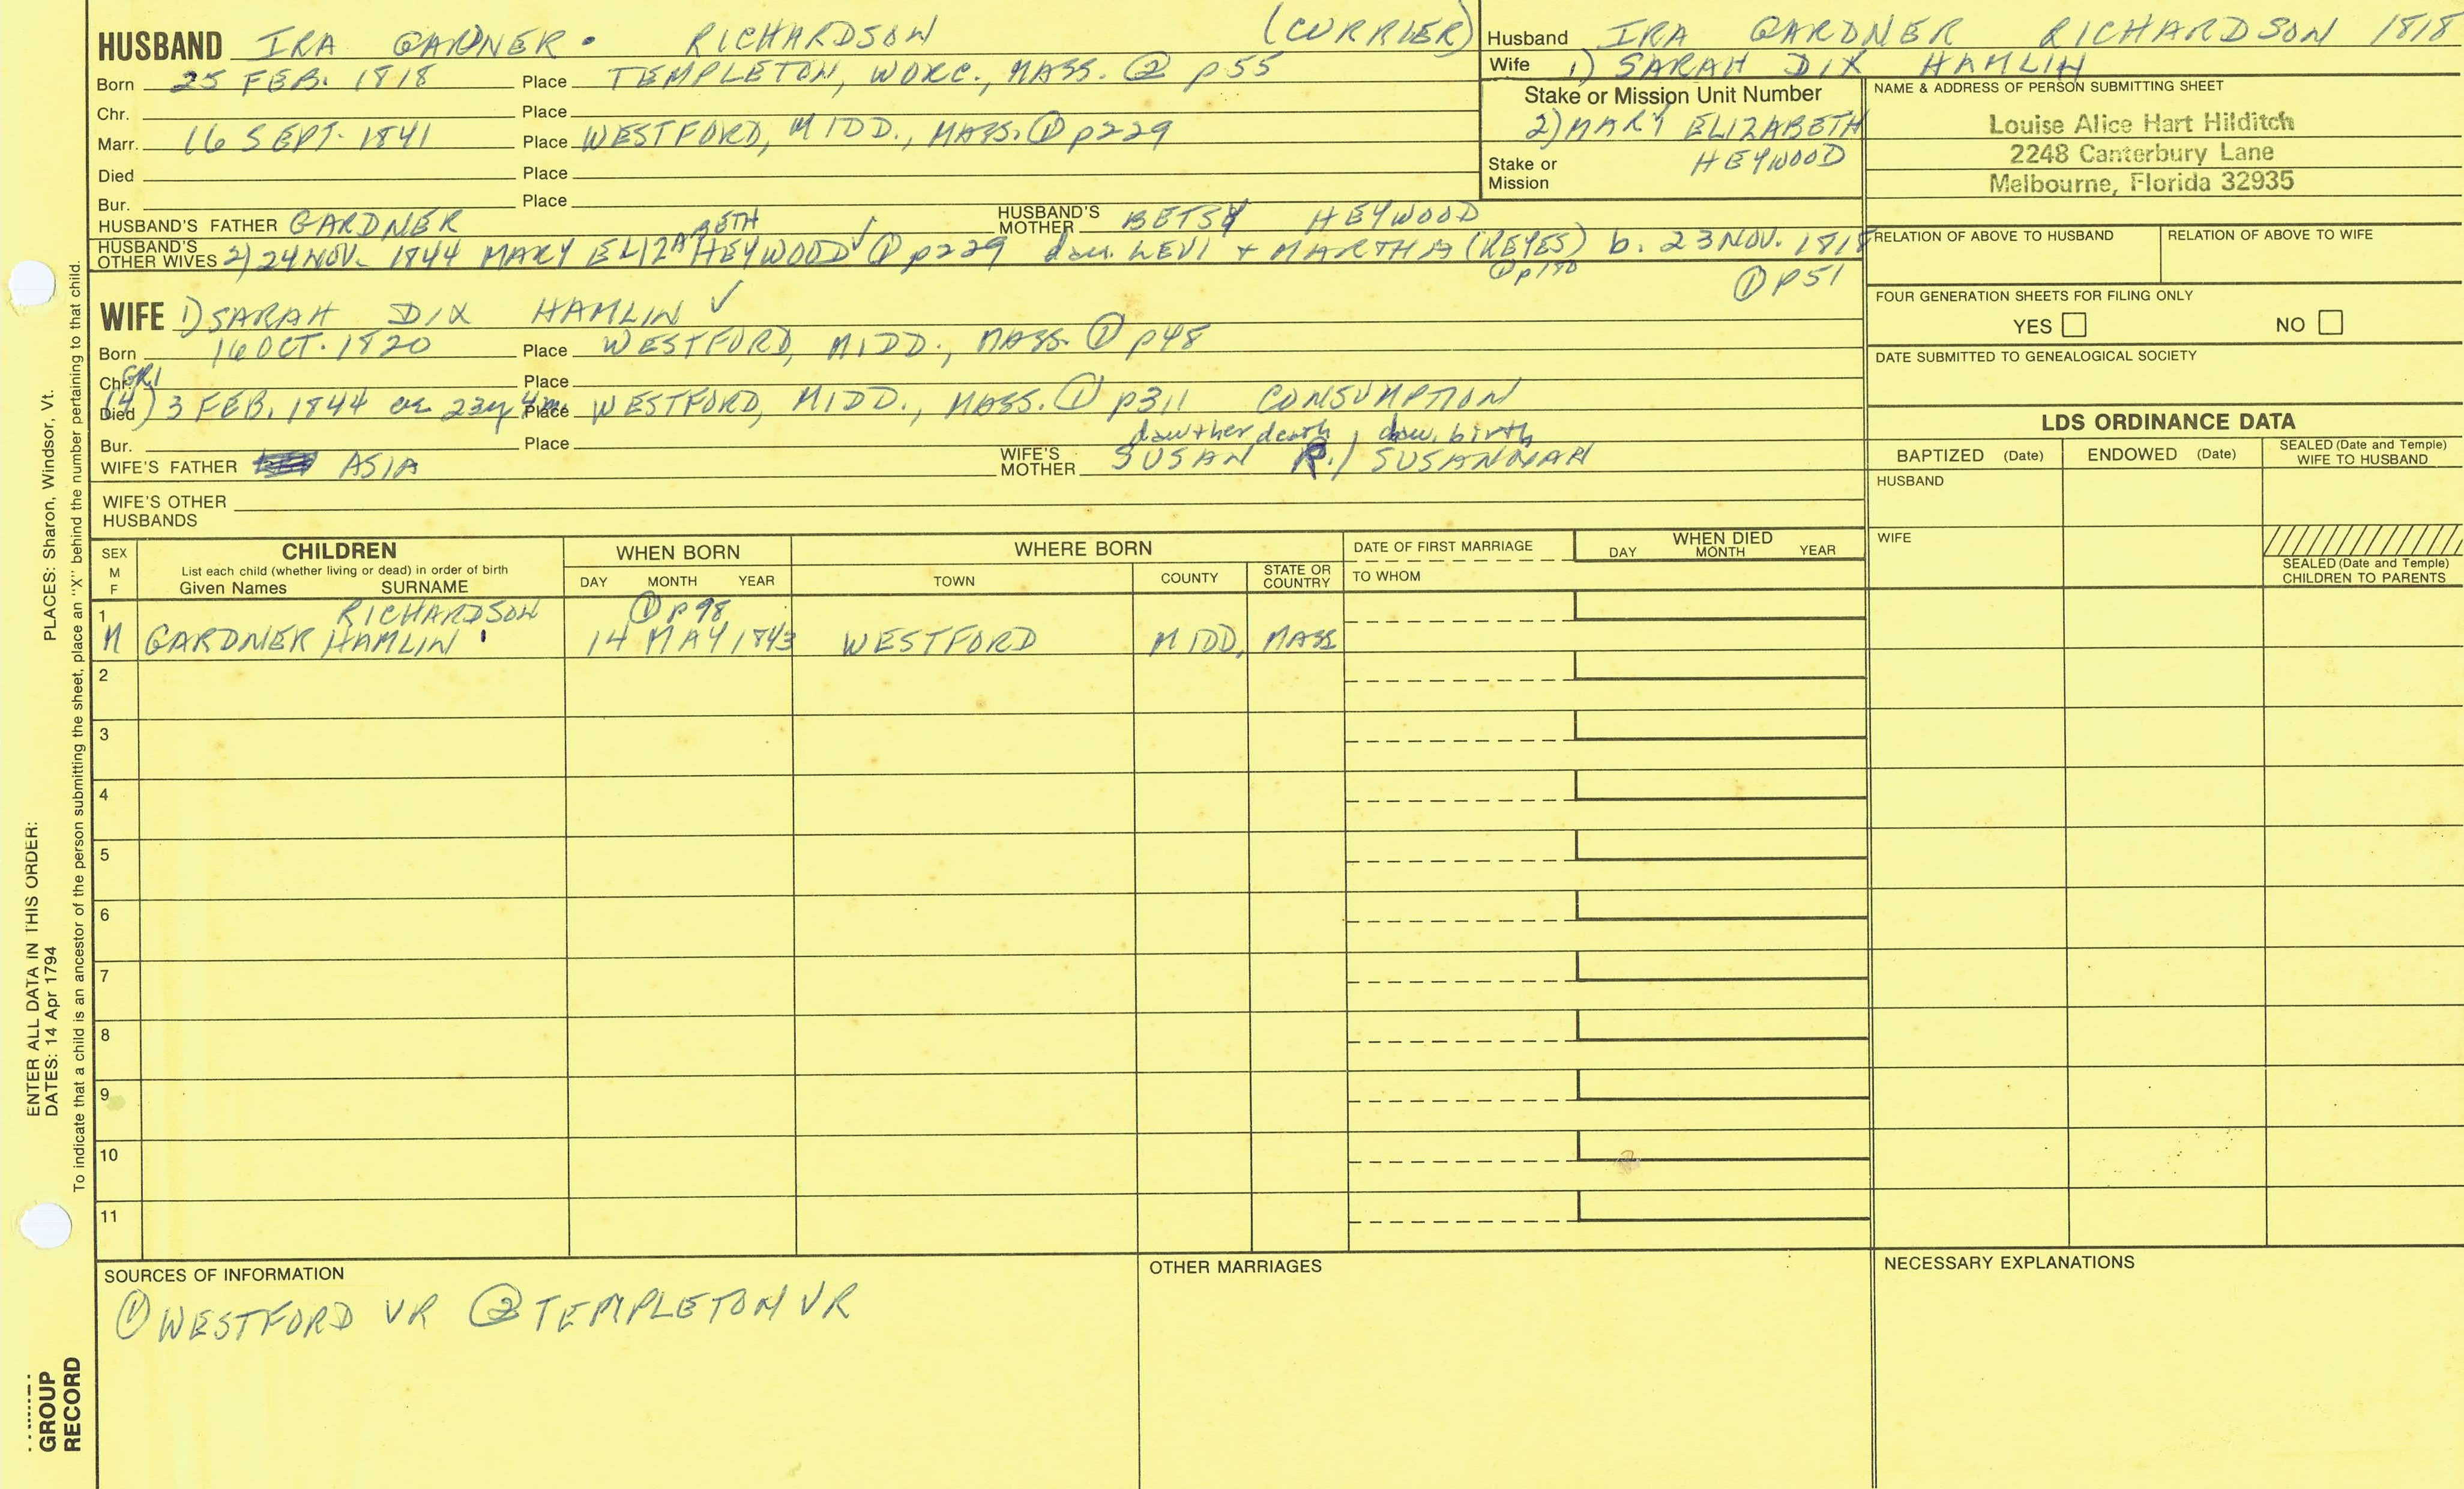 HUSBAND IRA GARDNER. RICHARDSON (CURRIER)
Born 25 FEB. 1818 Place TEMPLETON, WORC., MASS. ② p55
Chr. Place
Marr. 16 SEPT. 1841 Place WESTFORD, MIDD., MASS. ① p229
Died Place
Bur. Place
HUSBAND'S FATHER GARDNER HUSBAND'S MOTHER BETSY HEYWOOD
HUSBAND'S OTHER WIVES 2) 24 NOV. 1844 MARY ELIZABETH HEYWOOD ✓ ① p229 dau. LEVI + MARTHA (KEYES) b. 23 NOV. 1818
① p190 ① P51
Husband IRA GARDNER RICHARDSON 1818
Wife 1) SARAH DIX HAMLIN
Stake or Mission Unit Number
2) MARY ELIZABETH
HEYWOOD
Stake or
Mission
NAME & ADDRESS OF PERSON SUBMITTING SHEET
Louise Alice Hart Hilditch
2248 Canterbury Lane
Melbourne, Florida 32935
RELATION OF ABOVE TO HUSBAND RELATION OF ABOVE TO WIFE
FOUR GENERATION SHEETS FOR FILING ONLY
YES NO
DATE SUBMITTED TO GENEALOGICAL SOCIETY
WIFE 1) SARAH DIX HAMLIN ✓
Born 16 OCT. 1820 Place WESTFORD, MIDD., MASS. ① p48
Chr. Place
GR1
Died (4) 3 FEB. 1844 ae 23y 4m Place WESTFORD, MIDD., MASS. ① p311 CONSUMPTION
Bur. Place
dauther death, dau. birth
WIFE'S FATHER ASIA WIFE'S MOTHER SUSAN R. / SUSANNAH
WIFE'S OTHER
HUSBANDS
LDS ORDINANCE DATA
BAPTIZED (Date) ENDOWED (Date) SEALED (Date and Temple) WIFE TO HUSBAND
HUSBAND
WIFE
SEALED (Date and Temple) CHILDREN TO PARENTS
SEX M F
CHILDREN
List each child (whether living or dead) in order of birth
Given Names SURNAME
WHEN BORN
DAY MONTH YEAR
WHERE BORN
TOWN COUNTY STATE OR COUNTRY
DATE OF FIRST MARRIAGE
TO WHOM
WHEN DIED
DAY MONTH YEAR
1 RICHARDSON ① p98
M GARDNER HAMLIN 14 MAY 1843 WESTFORD MIDD, MASS
2
3
4
5
6
7
8
9
10
11
SOURCES OF INFORMATION
① WESTFORD VR ② TEMPLETON VR
OTHER MARRIAGES
NECESSARY EXPLANATIONS
ENTER ALL DATA IN THIS ORDER:
DATES: 14 Apr 1794 PLACES: Sharon, Windsor, Vt.
To indicate that a child is an ancestor of the person submitting the sheet, place an "X" behind the number pertaining to that child.
GROUP
RECORD